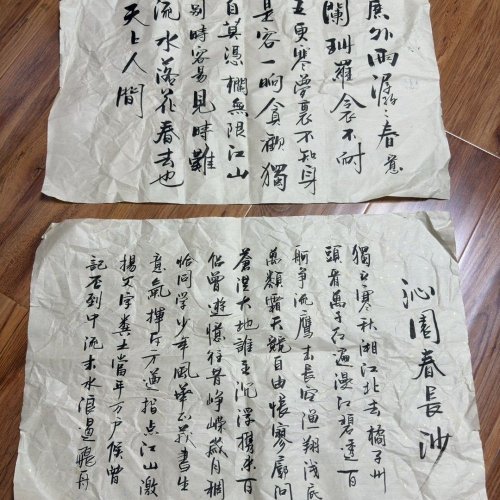 簾外雨潺〻春意
闌珊羅衾不耐
五更寒夢裏不知身
是客一晌貪歡獨
自莫憑欄無限江山
別時容易見時難
流水落花春去也
天上人間
沁園春長沙
獨立寒秋湘江北去橘子州
頭看萬遍漫江碧透百
舸爭流鷹击長空漁翔浅底
萬類霜天競自由悵寥廓問
蒼茫大地誰主沉浮携來百
侶曾遊憶往昔崢嶸歲月稠
恰同學少年風華正茂書生
意氣揮斥方遒指点江山激
揚文字糞土當年万户侯曾
記否到中流击水浪遏飛舟